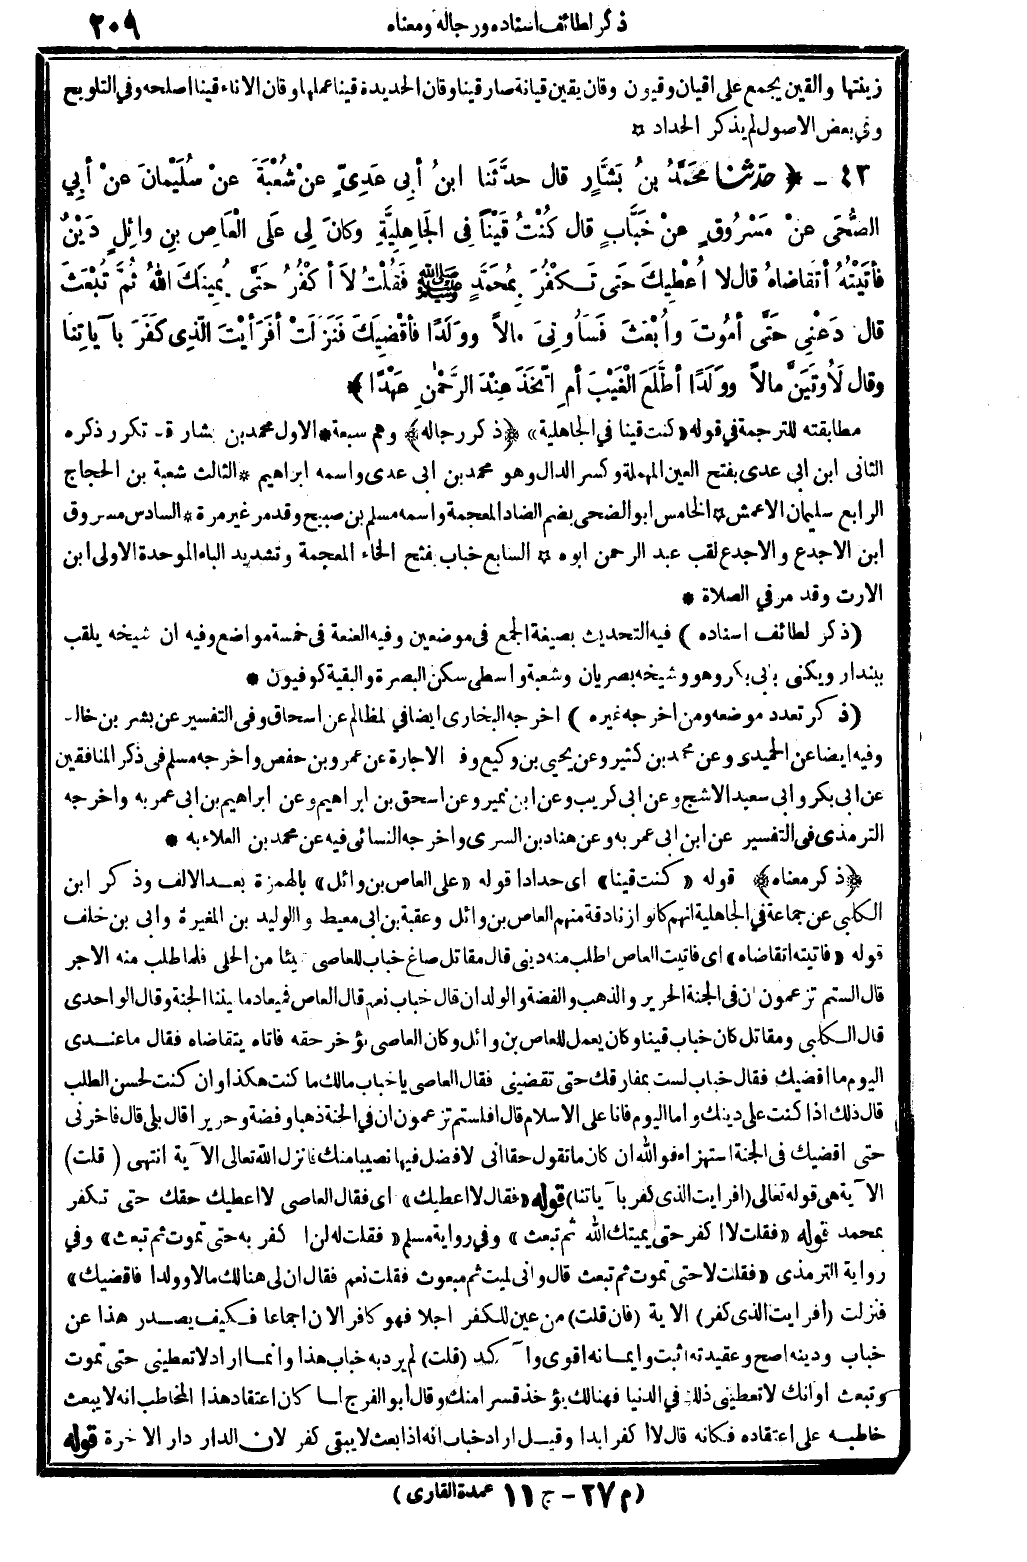 ذكر لطائف اسناده ورجاله ومعناه
٢٠٩
زينتها والقين يجمع على اقيان وقيون وقان يقين قيانة صار قينا وقان الحديدة قينا عملها وقان الاناء قينا اصلحه وفي التلويح
وفي بعض الاصول لم يذكر الحداد *
٤٣ - ﴿ حَدَّثَنَا مُحَمَّدُ بنُ بَشَّارٍ قال حدَّثَنَا ابنُ أبِى عَدِىٍّ عنْ شُعْبَةَ عنْ سُلَيْمانَ عنْ أبِي
الضُّحَى عنْ مَسْرُوقٍ عنْ خَبَّابٍ قال كُنْتُ قَيْنَاً فِى الجَاهِليَّةِ وكانَ لِى عَلَى الْعَاصِ بنِ وائِلٍ دَيْنٌ
فأتَيْتُهُ أتَقاضاهُ قال لا اُعْطِيكَ حَتَى تَكْفُرَ بِمُحَمَّدٍ ﷺ فَقُلْتُ لاَ أكْفُرُ حَتَّى يُمِيتَكَ اللهُ ثُمَّ تُبْعَثَ
قال دَعْنِى حَتَّى أمُوتَ وأُبْعَثَ فَسَأُوتِىَ مالاً وولَدًا فأقْضِيكَ فَنَزَلَتْ أفَرَأيْتَ الَّذِى كَفَرَ بآياتِنَا
وقال لَأُوتَيَنَّ مالاً وولَدًا أطَّلَعَ الْغَيْبَ أمِ اتَّخَذَ عِنْدَ الرَّحْمٰنِ عَهْدًا ﴾
مطابقته للترجمة في قوله «كنت قينا في الجاهلية» ﴿ذكر رجاله﴾ وهم سبعة * الاول محمد بن بشار قد تكرر ذكره
الثانى ابن ابى عدى بفتح العين المهملة وكسر الدال وهو محمد بن ابى عدى واسمه ابراهيم * الثالث شعبة بن الحجاج
الرابع سليمان الاعمش * الخامس ابو الضحى بضم الضاد المعجمة واسمه مسلم بن صبيح وقد مر غير مرة * السادس مسروق
ابن الاجدع والاجدع لقب عبد الرحمن ابوه * السابع خباب بفتح الخاء المعجمة وتشديد الباء الموحدة الاولى ابن
الارت وقد مر في الصلاة *
(ذكر لطائف اسناده) فيه التحديث بصيغة الجمع فى موضعين وفيه العنعنة فى خمسة مواضع وفيه ان شيخه يلقب
ببندار ويكنى بابى بكر وهو وشيخه بصريان وشعبة واسطى سكن البصرة والبقية كوفيون *
(ذكر تعدد موضعه ومن اخرجه غيره) اخرجه البخارى ايضا في المظالم عن اسحاق وفى التفسير عن بشر بن خالد
وفيه ايضا عن الحميدى وعن محمد بن كثير وعن يحيى بن وكيع وفى الاجارة عن عمرو بن حفص واخرجه مسلم فى ذكر المنافقين
عن ابى بكر وابى سعيد الاشج وعن ابى كريب وعن ابن نمير وعن اسحق بن ابراهيم وعن ابراهيم بن ابى عمر به واخرجه
الترمذى فى التفسير عن ابن ابى عمر به وعن هناد بن السرى واخرجه النسائى فيه عن محمد بن العلاء به *
﴿ذكر معناه﴾ قوله «كنت قينا» اى حدادا قوله «على العاص بن وائل» بالهمزة بعد الالف وذكر ابن
الكلبى عن جماعة في الجاهلية انهم كانوا زنادقة منهم العاص بن وائل وعقبة بن ابى معيط والوليد بن المغيرة وابى بن خلف
قوله «فاتيته اتقاضاه» اى فاتيت العاص اطلب منه دينى قال مقاتل صاغ خباب للعاصى شيئا من الحلى فلما طلب منه الاجر
قال الستم تزعمون ان فى الجنة الحرير والذهب والفضة والولدان قال خباب نعم قال العاص فميعاد ما بيننا الجنة وقال الواحدى
قال الكلبي ومقاتل كان خباب قينا وكان يعمل للعاص بن وائل وكان العاصى يؤخر حقه فاتاه يتقاضاه فقال ما عندى
اليوم ما اقضيك فقال خباب لست بمفارقك حتى تقضينى فقال العاصى يا خباب مالك ما كنت هكذا وان كنت لحسن الطلب
قال ذلك اذا كنت على دينك واما اليوم فانا على الاسلام قال افلستم تزعمون ان في الجنة ذهبا وفضة وحريرا قال بلى قال فاخرنى
حتى اقضيك فى الجنة استهزاء فوالله ان كان ما تقول حقا انى لافضل فيها نصيبا منك فانزل الله تعالى الآية انتهى (قلت)
الآية هى قوله تعالى (افرايت الذى كفر بآياتنا) قوله «فقال لا اعطيك» اى فقال العاصى لا اعطيك حقك حتى تكفر
بمحمد قوله «فقلت لا اكفر حتى يميتك الله ثم تبعث» وفي رواية مسلم «فقلت له لن اكفر به حتى تموت ثم تبعث» وفي
رواية الترمذى «فقلت لا حتى تموت ثم تبعث قال وانى لميت ثم مبعوث فقلت نعم فقال ان لى هنالك مالا وولدا فاقضيك»
فنزلت (افرايت الذى كفر) الاية (فان قلت) من عين للكفر اجلا فهو كافر الان اجماعا فكيف يصدر هذا عن
خباب ودينه اصح وعقيدته اثبت وايمانه اقوى وآكد (قلت) لم يرد به خباب هذا وانما اراد لا تعطينى حتى تموت
وتبعث او انك لا تعطينى ذلك في الدنيا فهنالك يؤخذ قسرا منك وقال أبو الفرج لما كان اعتقاد هذا المخاطب انه لا يبعث
خاطبه على اعتقاده فكانه قال لا أكفر ابدا وقيل اراد خباب انه اذا بعث لا يبقى كفر لان الدار دار الآخرة قوله
(م ٢٧ - ج ١١ عمدة القارى)